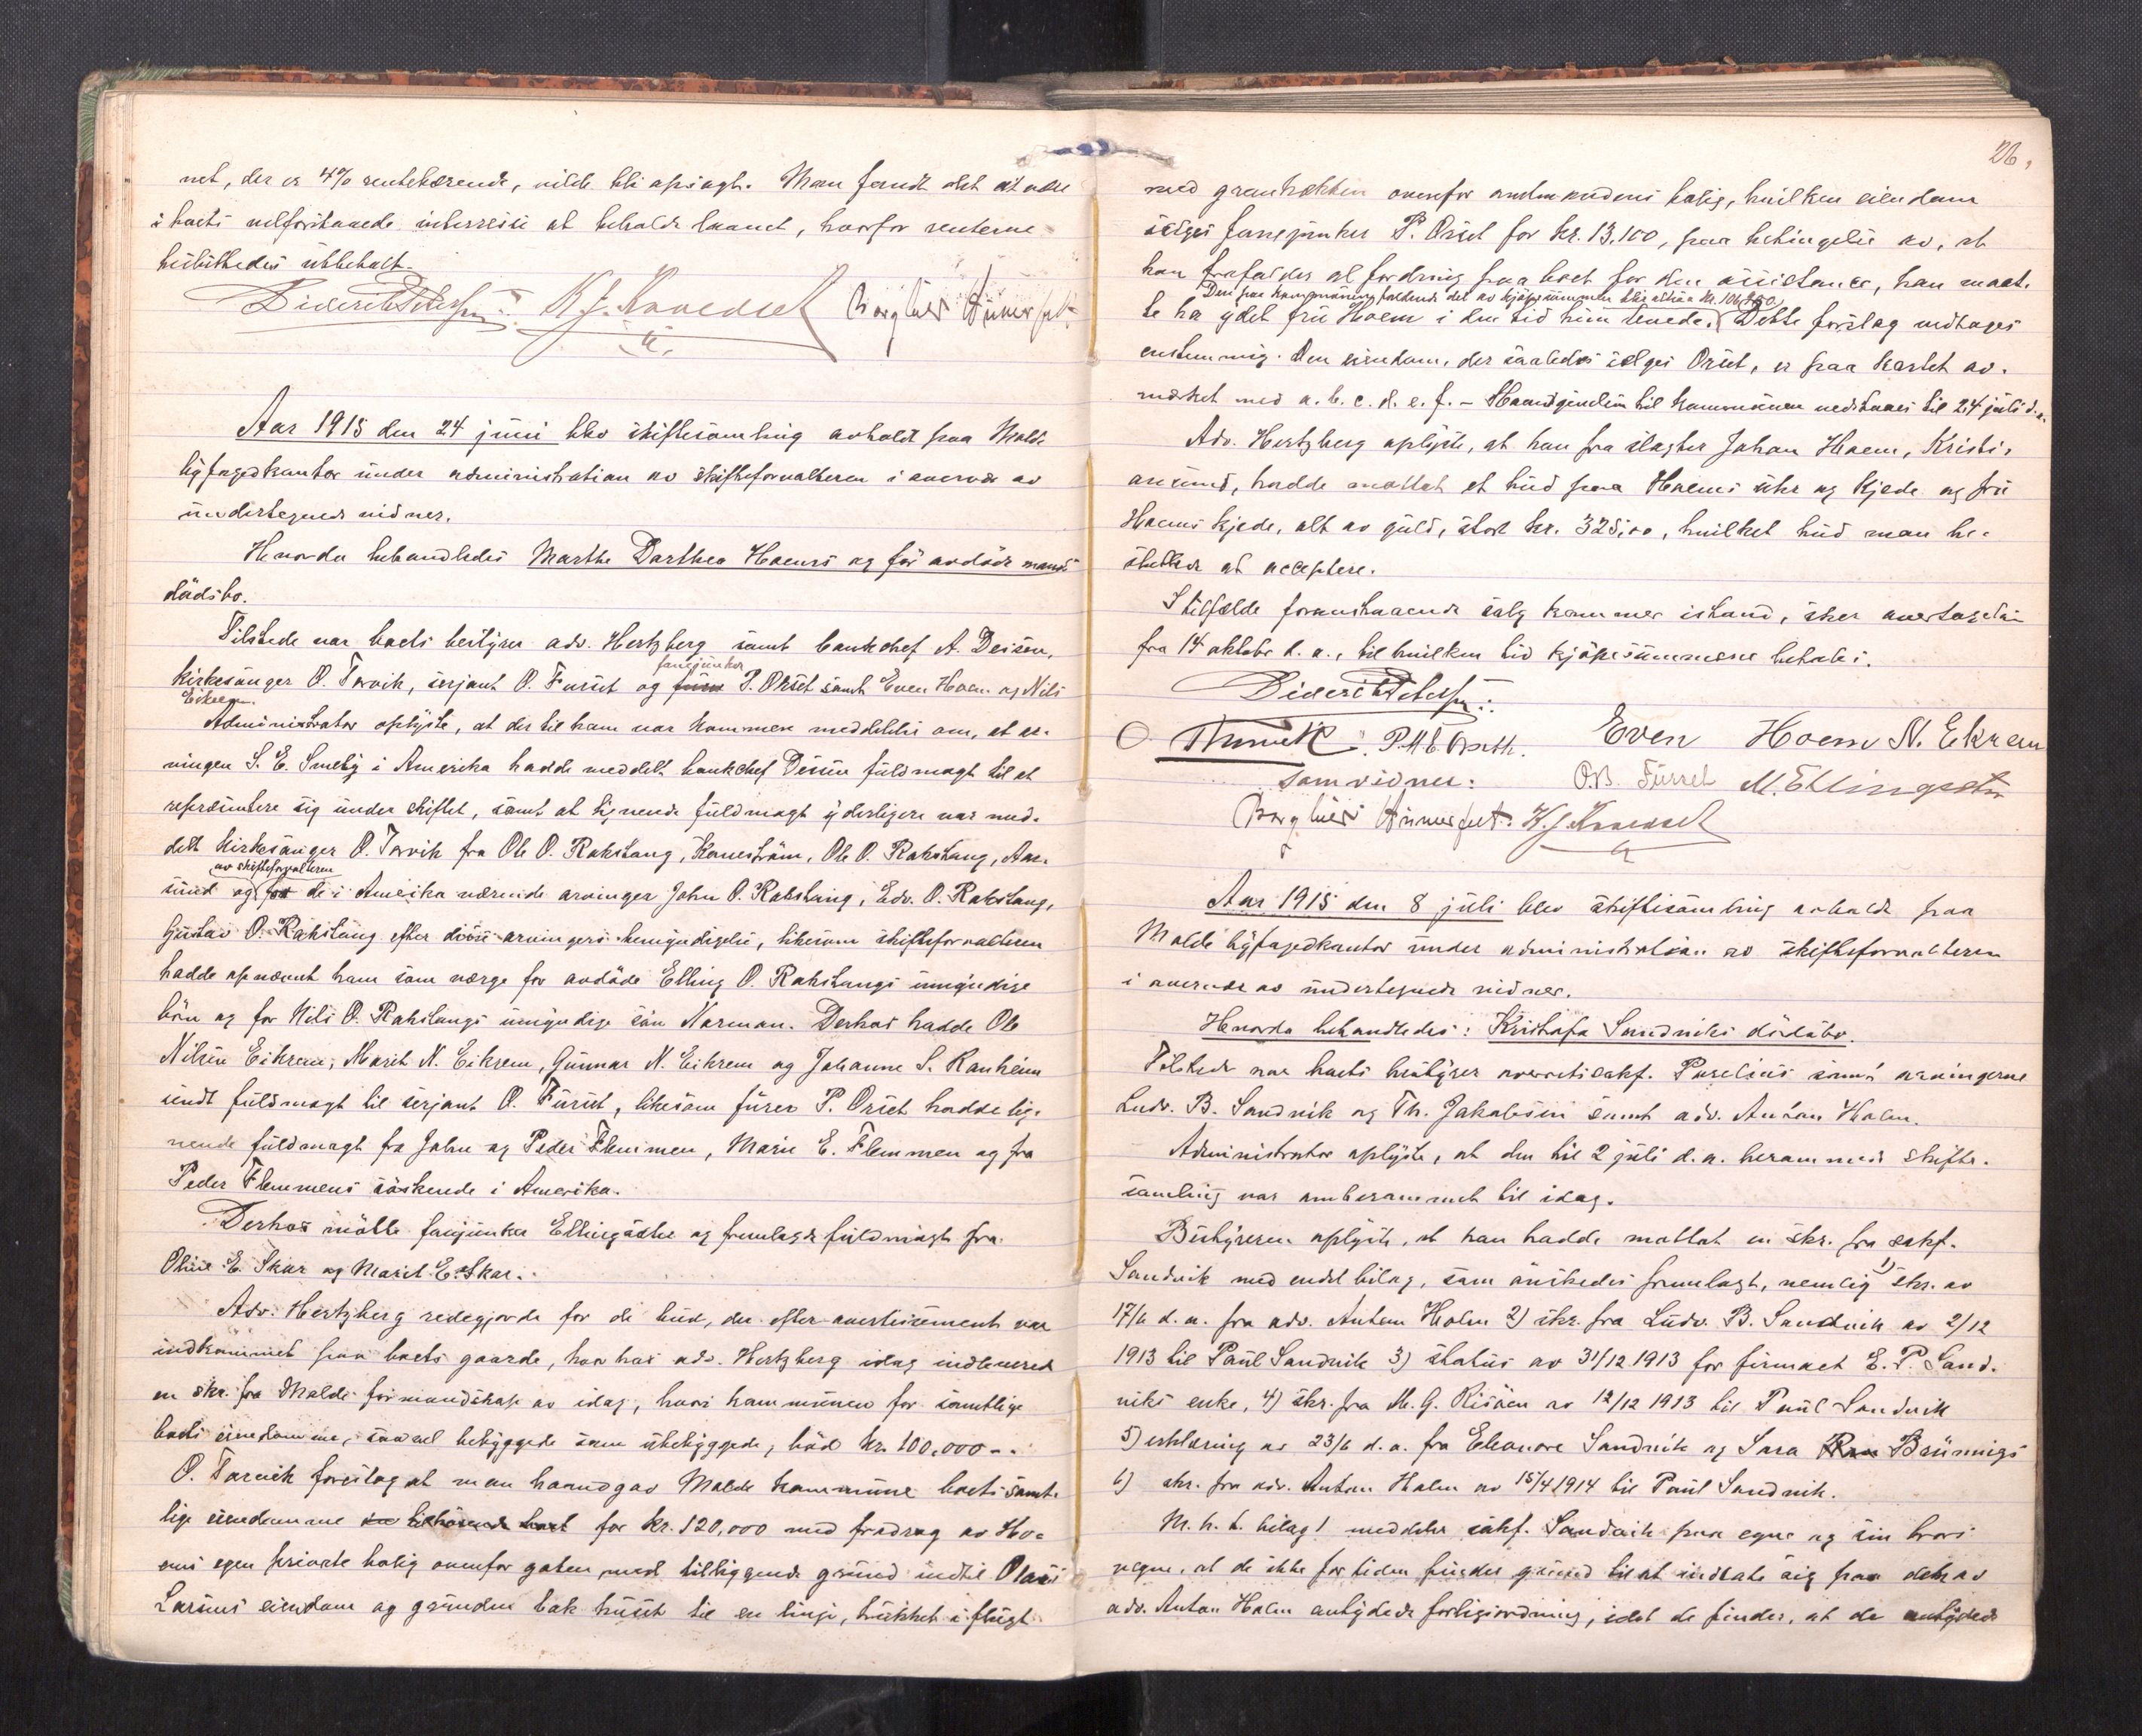 net, der er 4% rentebærende, vilde bli opsagt. Man fandt det at være
i boets velforstaaede interesse at beholde laanet, hvorfor renterne
besluttedes utbetalt.
Diderik Petersen K. J. Knoedsel Borghild Hünerfut
Aar 1915 den 24 juni blev skiftesamling avholdt paa Molde
byfogedkontor under administration av skifteforvalteren i overvær av
undertegnede vidner.
Hvorda behandledes Marthe Dorthea Hoems og før avdöde mands
dödsbo.
Tilstede var boets bestyrer adv. Hertzberg samt bankchef A. Deisen,
fanejunker
kirkesanger O. Tarvik, serjant O. Furset og P. Orset samt Even Hoem og Nils
Eikrem.
Administrator oplyste, at der til ham var kommen meddelelse om, at ar-
vingen S. E. Smeby i Amerika hadde meddelt bankchef Deisen fuldmagt til at
repræsentere sig under skiftet, samt at lignende fuldmagt yderligere var med-
delt kirkesanger O. Tarvik fra Ole O. Rakstang, Kanestrøm, Ole O. Rakstang, Aar-
av skifteforvalteren
sund og for de i Amerika værende arvinger John O. Rakstang, Edv. O. Rakstang,
Gustav O. Rakstang efter disse arvingers bemyndigelse, likesom skifteforvalteren
hadde opnævnt ham som værge for avdöde Elling O. Rakstangs umyndige
børn og for Nils O. Rakstangs umyndige sön Norman. Derhos hadde Ole
Nilsen Eikrem, Marit N. Eikrem, Gunnar N. Eikrem og Johanne S. Ranheim
sendt fuldmagt til serjant O. Furset, likesom furer P. Orset hadde lig-
nende fuldmagt fra John og Peder Flemmen, Marie E. Flemmen og fra
Peder Flemmens söskende i Amerika.
Derhos mötte fanejunker Ellingsæter og fremlagde fuldmagt fra
Oline E. Skar og Marit E. Skar.
Adv. Hertzberg redegjorde for de bud, der efter avertissement var
indkommet paa boets gaarde, hvorhos adv. Hertzberg idag indleverede
en skr. fra Molde formandskap av idag, hvori kommunen for samtlige
boets eiendomme, saavel bebyggede som ubebyggede, böd kr. 100,000 --
O. Tarvik foreslog at man haandgav Molde kommune boets samt-
lige eiendomme for kr. 120,000 med fradrag av Ho-
ems egen private bolig ovenfor gaten med tilliggende grund indtil Olaus
Larsens eiendom og grunden bak huset til en linje, trukket i flugt
26.
med granhækken ovenfor amtmandens bolig, hvilken eiendom
sælges fanejunker P. Orset for kr. 13,100, paa betingelse av, at
han frafalder al fordring paa boet for den assistance, han maat-
Den paa kommunen faldende del av kjøpesummen blir altsaa kr. 106,900
te ha ydet fru Hoem i den tid hun levede. Dette forslag vedtages
enstemmig. Den eiendom, der saaledes sælges Orset, er paa kartet av-
merket med a. b. c. d. e. f. - Haandgivelsen til kommunen vedstaaes til 24 juli d. a.
Adv. Hertzberg oplyste, at han fra slagter Johan Hoem, Kristi-
ansund, hadde mottat et bud paa Hoems uhr og kjede og fru
Hoems kjede, alt av guld, stort kr. 325,00, hvilket bud man be-
sluttede at acceptere.
I tilfælde foranstaaende salg kommer istand, sker overtagelsen
fra 14 oktober d. a., til hvilken tid kjøpesummene betales.
Diderik Petersen
O. Tarvik P. H. E. Orseth. Even Hoem N. Ekrem
som vidner: O.B. Furset M. Ellingsæter
Borghild Hünerfut K. J. Knoedsel
Aar 1915 den 8 juli blev skiftesamling avholdt paa
Molde byfogedkontor under administration av skifteforvalteren
i overvær av undertegnede vidner.
Hvorda behandledes: Kristofa Sandviks dödsbo.
Tilstede var boets bestyrer overretssakf. Parelius samt arvingerne
Ludv. B. Sandvik og Th. Jakobsen samt adv. Anton Holm.
Administrator oplyste, at den til 2 juli d. a. berammede skifte-
samling var omberammet til idag.
Bestyreren oplyste, at han hadde mottat en skr. fra sakf.
Sandvik med endel bilag, som önskedes fremlagt, nemlig 1) skr. av
17/6 d. a. fra adv. Anton Holm 2) skr. fra Ludv. B. Sandvik av 2/12
1913 til Paul Sandvik 3) status av 31/12 1913 for firmaet E. P. Sand-
viks enke, 4) skr. fra M. G. Risöen av 12/12 1913 til Paul Sandvik
5) erklæring av 23/6 d. a. fra Eleonore Sandvik og Sara Brünnigs
6) skr. fra adv. Anton Holm av 15/4 1914 til Paul Sandvik.
M. h. t. bilag 1 meddeler sakf. Sandvik paa egne og sin brors
vegne, at de ikke for tiden finder grund til at indlate sig paa den av
adv. Anton Holm antydede forligsordning, idet de finder, at de antydede